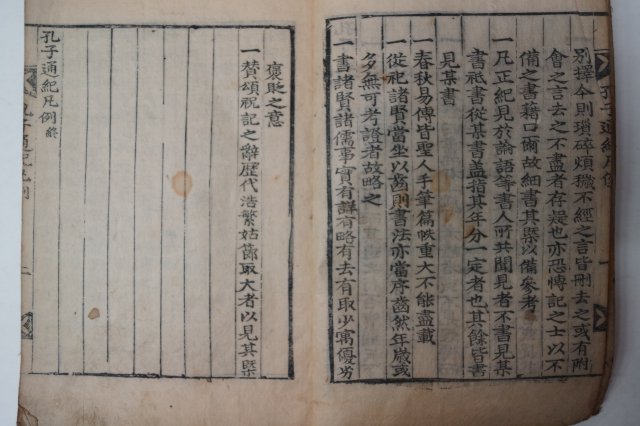 別擇今則瑣碎煩猥不經之言皆刪去之或有附
會之言去之不盡者存疑也亦恐傳記之士以不
備之書藉口爾故細書其槩以備參考
一凡正紀見於論語等書人所共聞見者不書見某
書秪書從某書蓋指其年分一定者也其餘皆書
見某書
一春秋易傳皆聖人手筆篇帙重大不能盡載
一從祀諸賢當坐以齒則書法亦當序齒然年歲或
多無可考證者故略之
一書諸賢諸儒事實有詳有略有去有取少寓優劣
褒貶之意
一贊頌祝記之辭歷代浩繁姑節取大者以見其槩
孔子通紀凡例終
孔子通紀凡例
一
孔子通紀凡例
二